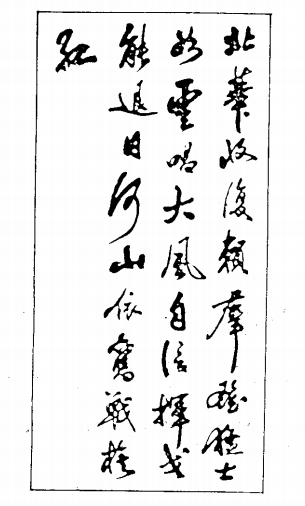 北華收復賴羣雄猛士
如雲唱大風自信揮戈
能退日河山依舊戰旗
紅